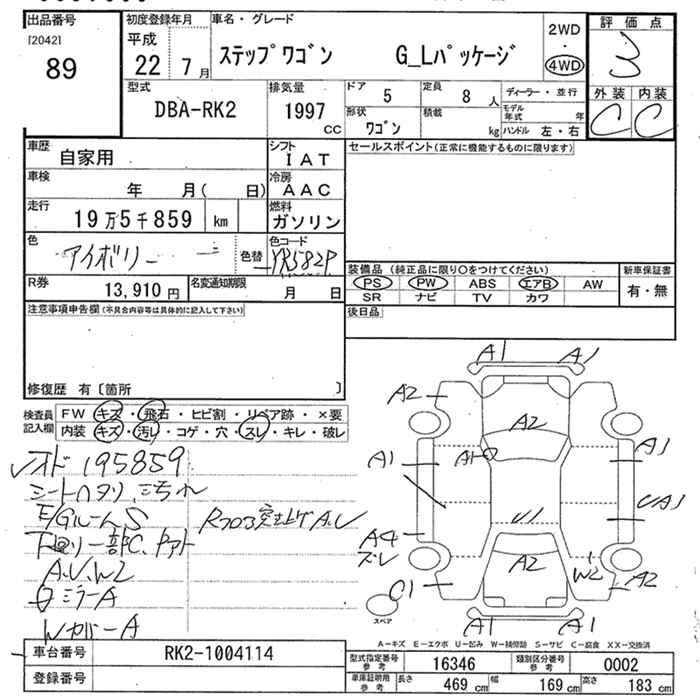 出品番号
[2042]
89
初度登録年月
平成
22 7月
車名・グレード
ステップワゴン G_Lパッケージ
2WD
・
4WD
評価点
3
外装 内装
C C
型式
DBA-RK2
排気量
1997
CC
ドア
5
定員
8 人
形状
ワゴン
積載
kg
ディーラー・並行
モデル年式 年
ハンドル 左・右
車歴
自家用
シフト
IAT
セールスポイント(正常に機能するものに限ります)
車検
年 月( 日)
冷房
AAC
走行
19万5千859 km
燃料
ガソリン
色
アイボリー
色替
色コード
YR582P
R券
13,910円
名変通知期限
月 日
装備品(純正品に限り○をつけてください)
PS PW ABS エアB AW
SR ナビ TV カワ
新車保証書
有・無
後日品
注意事項申告欄(不具合内容等は具体的に記入して下さい)
修復歴 有〔箇所 〕
検査員記入欄
FW キズ・飛石・ヒビ割・リペア跡・×要
内装 キズ・汚レ・コゲ・穴・スレ・キレ・破レ
オド195859
シートヘタリ、
E/GルームS
Rフロア突上げA.U
下廻り一部C、
A.U.W2
ミラーA
WカバーA
A1 A1
A2
A2
A1
A1
A1
UA1
A4
ズレ
A2
W2
A2
C1
A1 A1
スペア
A－キズ E－エクボ U－凹み W－補修跡 S－サビ C－腐食 XX－交換済
車台番号
RK2-1004114
登録番号
型式指定番号
参考
16346
類別区分番号
参考
0002
車庫証明用
参考
長さ
469 cm
幅
169 cm
高さ
183 cm